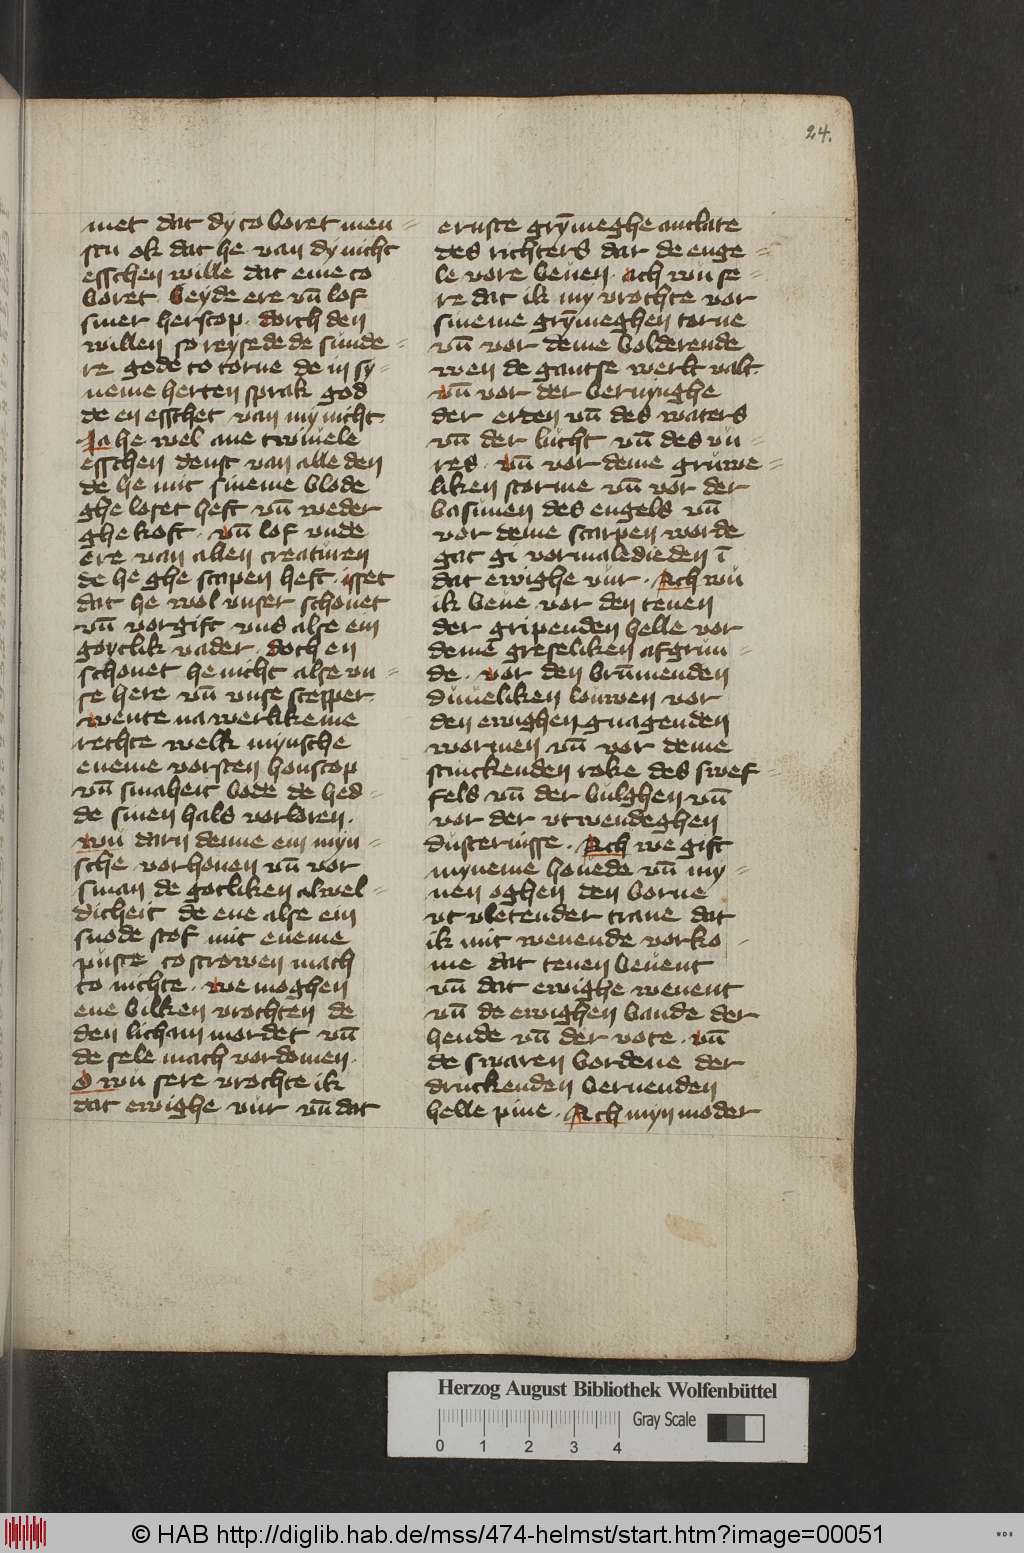 24.
met dat dy to boret men=
stu ok dat he van dy nicht
esschen wille dat eme to
boret. beyde ere vn̄ lof
siner herscop. dorch den
willen so reysede de sunde=
re gode to torne de in sy=
neme herten sprak god
de en esschet van my nicht.
Ja he wel ane twiuele
esschen denst van alle den
de he mit sineme blode
ghe loset heft vn̄ weder
ghe koft. vn̄ lof vnde
ere van allen creaturen
de he ghe scapen heft. isset
dat he wol vnser schonet
vn̄ vorgift vns alse ein
gotlik vader. doch en
schonet he nicht alse vn=
se here vn̄ vnse scepper.
wente na werlikeme
rechte welk mynsche
eneme vorsten honscop
vn̄ smaheit bode de hed=
de sinen hals vorloren.
wu darn denne ein myn=
sche vorhonen vn̄ vor
sman de gotliken alwel=
dicheit de ene alse ein
snode stof mit eneme
puste to strowen mach
to nichte. we moghen
ene bilken vrochten de
den licham mordet vn̄
de sele mach vordomen.
O wu sere vrochte ik
dat ewighe vur vn̄ dat
ernste grȳmeghe antlate
des richters dar de enge=
le vore beuen. ach wu se=
re dat ik my vrochte vor
sineme grȳmeghen torne
vn̄ vor deme bolderende
wen de gantse werlt valt.
vn̄ vor der bernynghe
der erden vn̄ des waters
vn̄ der lucht vn̄ des vu=
res. vn̄ vor deme gruwe=
liken storme vn̄ vor der
basunen des engels vn̄
vor deme scarpen worde
gat gi vormaledieden ī
dat ewighe vur. Ach wu
ik beue vor den tenen
der gripenden helle vor
deme greseliken afgrun=
de. vor den brūmenden
duueliken louwen vor
den ewighen gnagenden
wormen vn̄ vor deme
stinckenden roke des swef=
fels vn̄ der bulghen vn̄
vor der vtwendeghen
dusternisse. Ach we gift
myneme houede vn̄ my=
nen oghen den borne
vt vletender trane dat
ik mit wenende vorko=
me dat tenen beuent
vn̄ dat ewighe wenent
vn̄ de ewighen bande der
hende vn̄ der vote. vn̄
de swaren bordene der
druckenden bernenden
helle pine. Ach myn moder
Herzog August Bibliothek Wolfenbüttel
Gray Scale
0 1 2 3 4
© HAB http://diglib.hab.de/mss/474-helmst/start.htm?image=00051